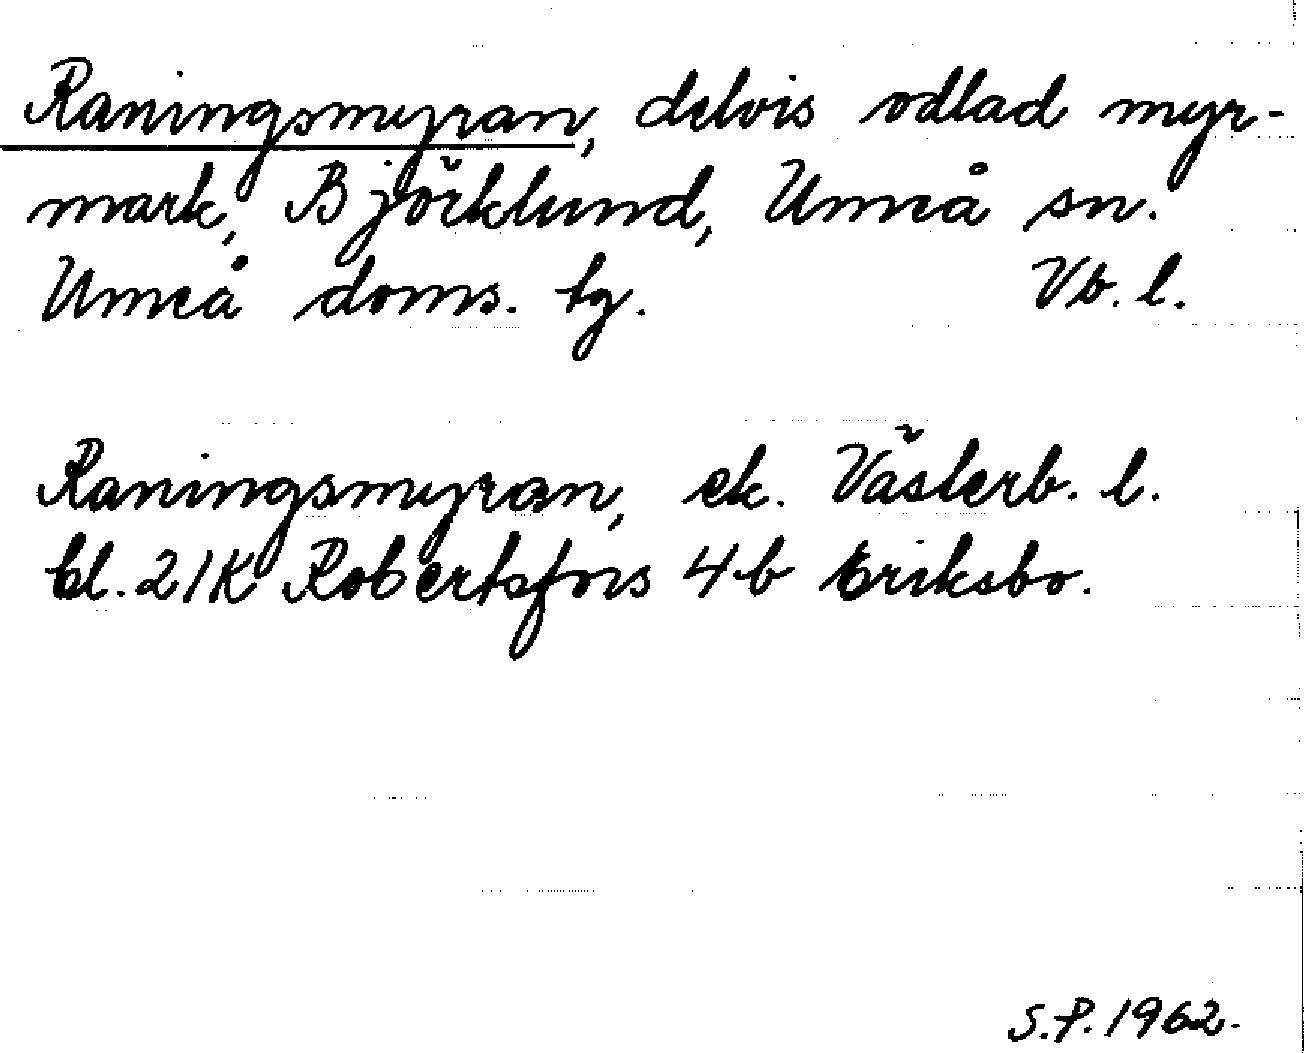 Raningsmyran, delvis odlad myr-
mark, Björklund, Umeå sn.
Umeå doms. tg. Vb. l.
Raningsmyran, ek. Västerb. l.
bl. 21K Robertsfors 4b Eriksbo.
S.P. 1962.